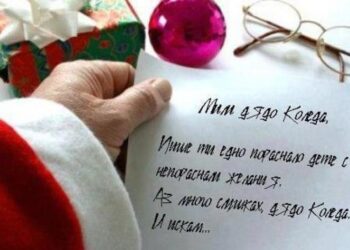 Мили дядо Коледа,
Пише ти едно пораснало дете с
непораснали желания.
Аз много слушках, дядо Коледа.
И искам...